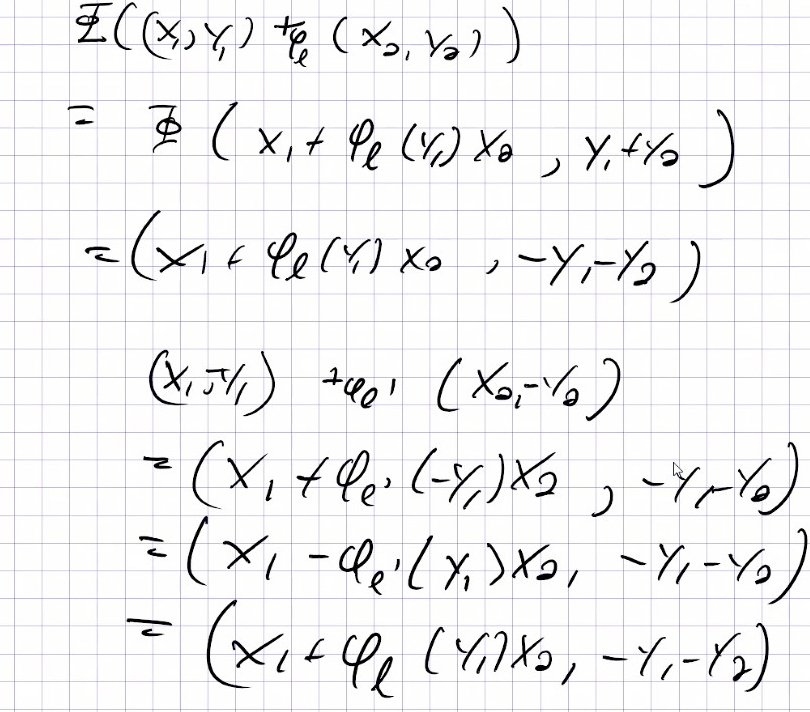 Φ((x₁, y₁) +_{φ_ℓ} (x₂, y₂))
= Φ (x₁ + φ_ℓ(y₁) x₂, y₁ + y₂)
= (x₁ + φ_ℓ(y₁) x₂, -y₁ - y₂)
(x₁, -y₁) +_{φ_ℓ'} (x₂, -y₂)
= (x₁ + φ_ℓ'(-y₁) x₂, -y₁ - y₂)
= (x₁ - φ_ℓ'(y₁) x₂, -y₁ - y₂)
= (x₁ + φ_ℓ(y₁) x₂, -y₁ - y₂)